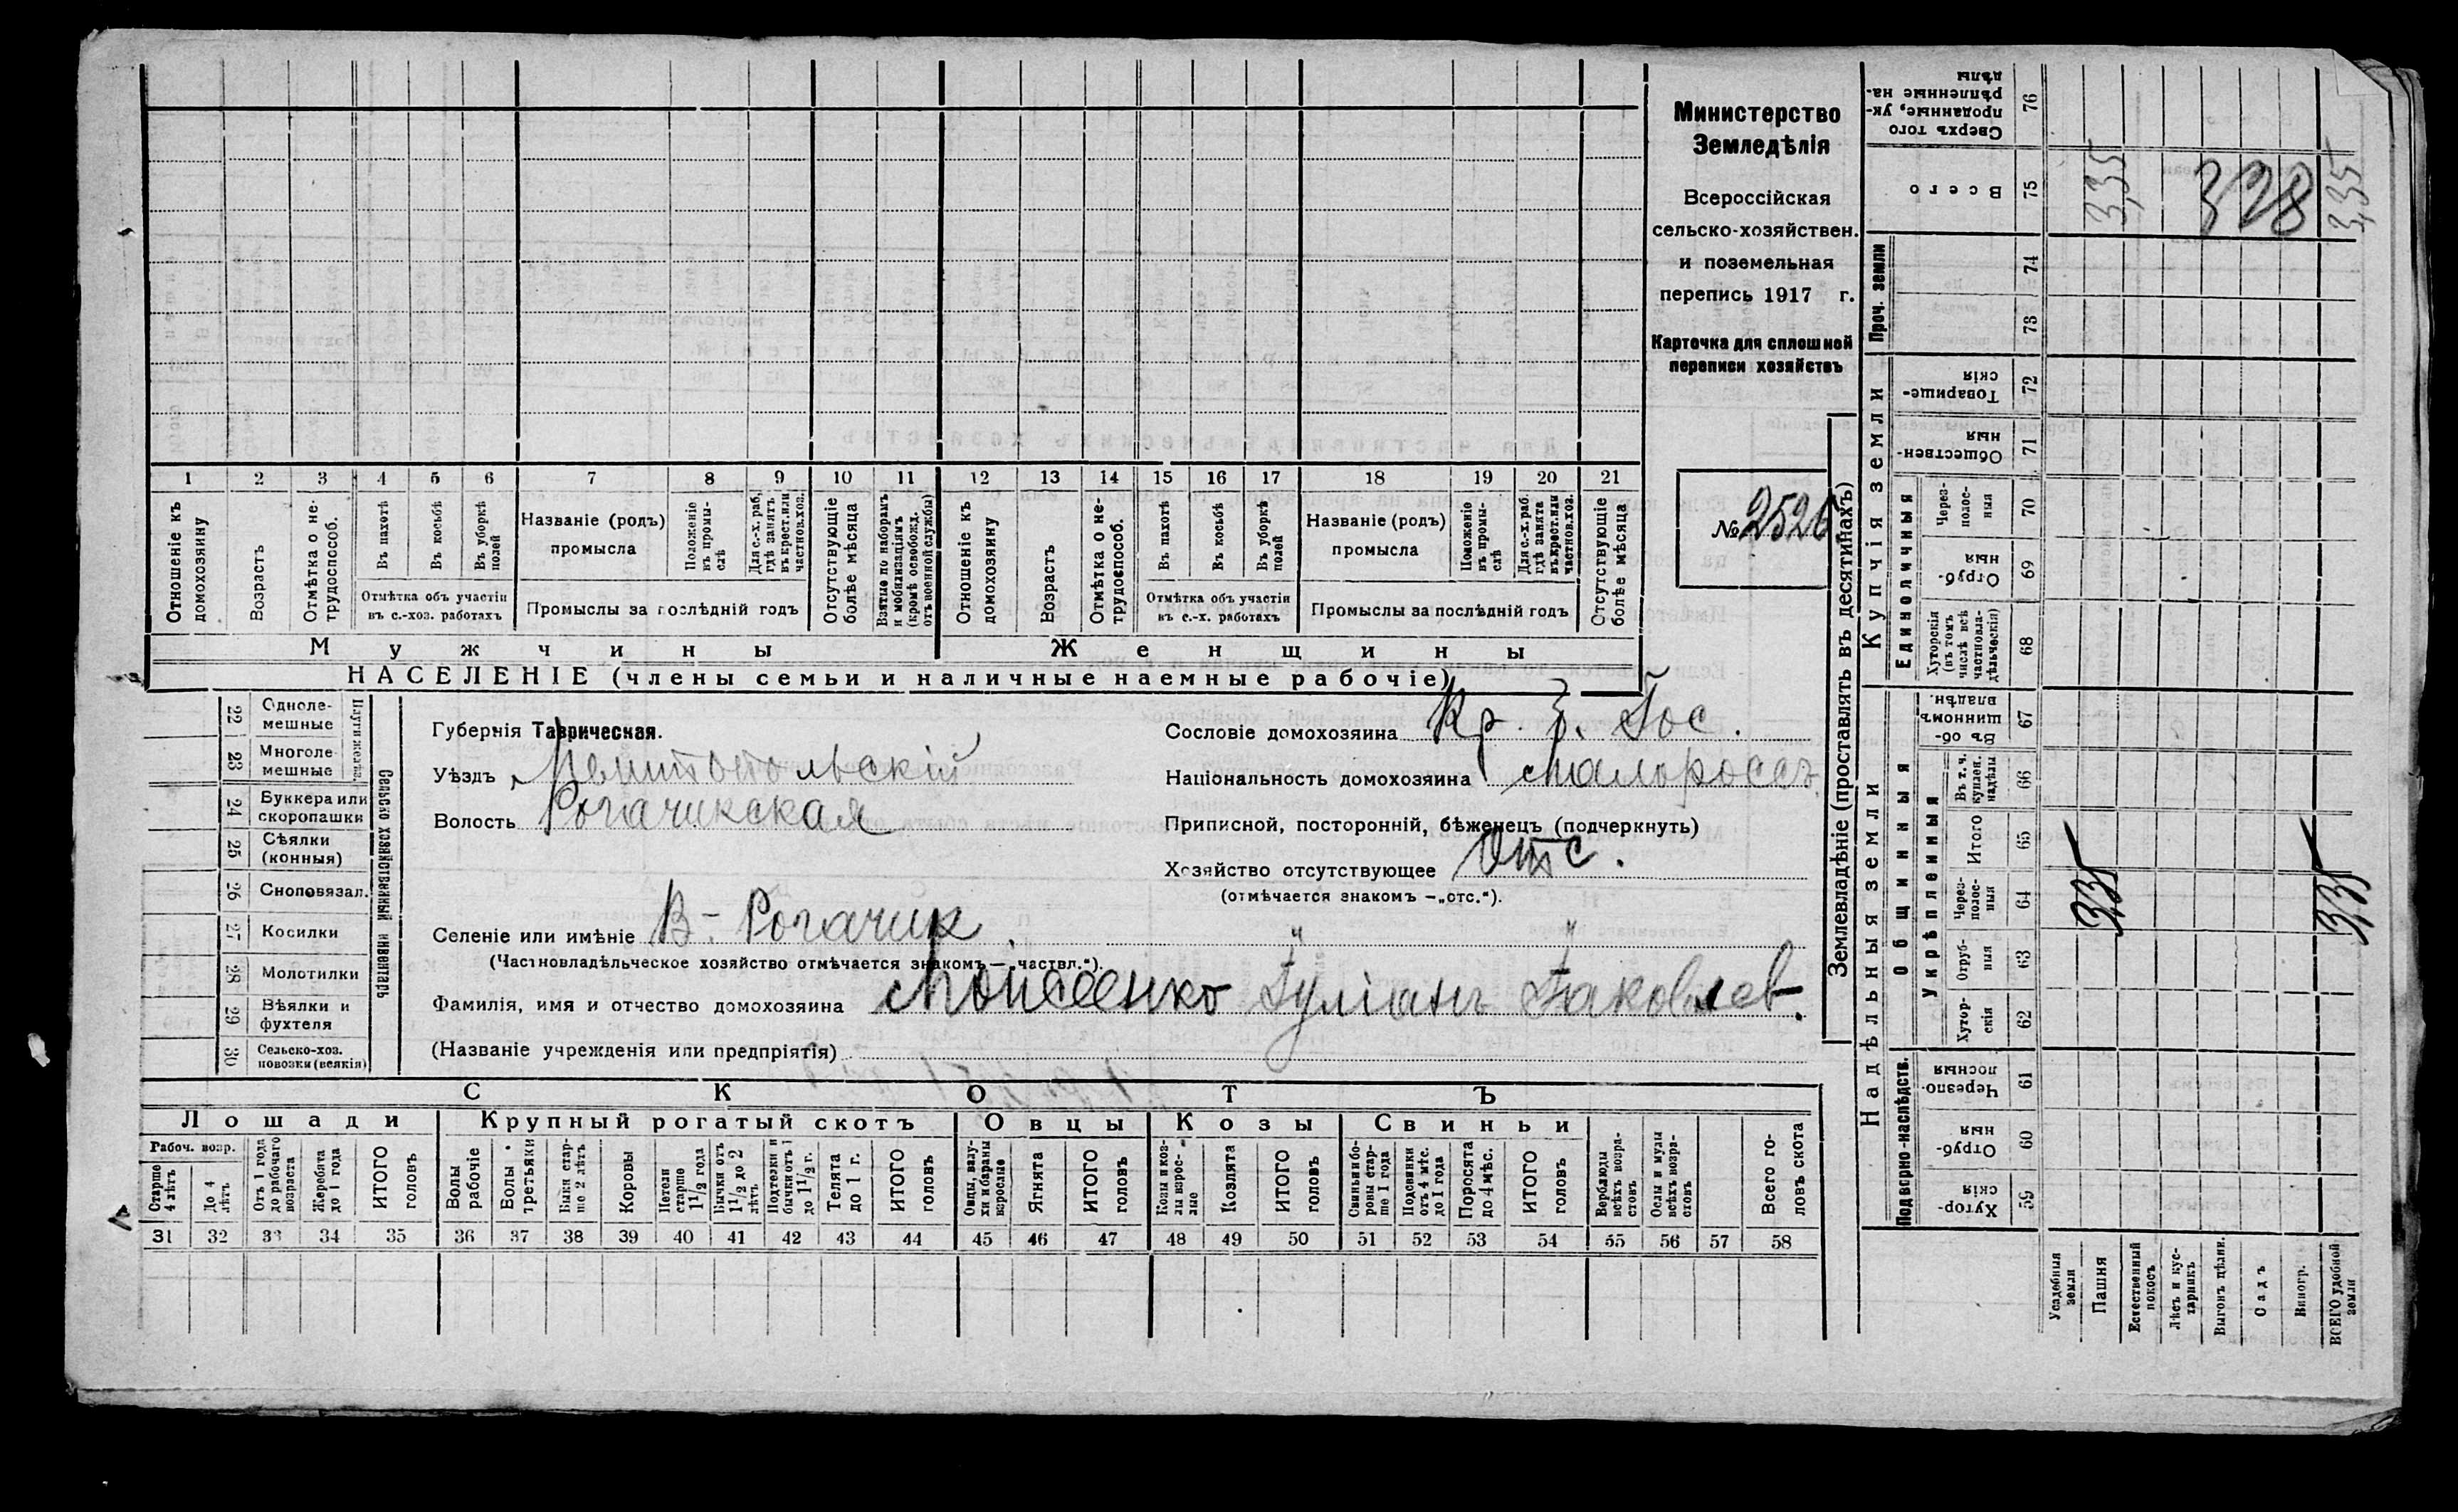 1 2 3 4 5 6 7 8 9 10 11 12 13 14 15 16 17 18 19 20 21
Отношеніе къ домохозяину
Возрастъ
Отмѣтка о не-
трудоспособ.
Въ пахотѣ
Въ косьбѣ
Въ уборкѣ
полей
Отмѣтка объ участіи
въ с.-хоз. работахъ
Названіе (родъ)
промысла
Положеніе
въ промы-
слѣ
Для с.-х. раб.
гдѣ занятъ
въ крест. или
частнов. хоз.
Промыслы за послѣдній годъ
Отсутствующіе
болѣе мѣсяца
Взятые по наборамъ
и мобилизаціямъ
(кромѣ освобожд.
отъ военной службы)
Отношеніе къ
домохозяину
Возрастъ
Отмѣтка о не-
трудоспособ.
Въ пахотѣ
Въ косьбѣ
Въ уборкѣ
полей
Отмѣтка объ участіи
въ с.-х. работахъ
Названіе (родъ)
промысла
Положеніе
въ промы-
слѣ
Для с.-х. раб.
гдѣ занята
въ крест. или
частнов. хоз.
Промыслы за послѣдній годъ
Отсутствующіе
болѣе мѣсяца
Мужчины
Женщины
НАСЕЛЕНІЕ (члены семьи и наличные наемные рабочіе)
Министерство
Земледѣлія
Всероссійская
сельско-хозяйствен.
и поземельная
перепись 1917 г.
Карточка для сплошной
переписи хозяйствъ
№ 2526
Сельско хозяйственный инвентарь
Плуги желѣз.
22 Однолe-
мешные
23 Многоле-
мешные
24 Буккера или
скоропашки
25 Сѣялки
(конныя)
26 Сноповязал.
27 Косилки
28 Молотилки
29 Вѣялки и
фухтеля
30 Сельско-хоз.
повозки (всякія)
Губернія Таврическая.
Уѣздъ Мелитопольскій
Волость Рогачикская
Селеніе или имѣніе В-Рогачик
(Частновладѣльческое хозяйство отмѣчается знакомъ — „частвл.").
Сословіе домохозяина Кр. З. Гос.
Національность домохозяина малороссъ
Приписной, посторонній, бѣженецъ (подчеркнуть)
Хозяйство отсутствующее Отс.
(отмѣчается знакомъ — „отс.").
Фамилія, имя и отчество домохозяина Моисеенко Іуліанъ Іаковлев.
(Названіе учрежденія или предпріятія)
СКОТЪ
Лошади
Крупный рогатый скотъ
Овцы
Козы
Свиньи
Рабоч. возр.
Старше
4 лѣтъ
До 4
лѣтъ
Отъ 1 года
до рабочаго
возраста
Жеребята
до 1 года
ИТОГО
головъ
Волы
рабочіе
Волы
третьяки
Быки стар-
ше 2 лѣтъ
Коровы
Нетели
старше
1 1/2 года
Бычки отъ
1 1/2 до 2
лѣтъ
Подтелки и
бычки отъ 1
до 1 1/2 г.
Телята
до 1 г.
ИТОГО
головъ
Овцы, валу-
хи и бараны
взрослые
Ягнята
ИТОГО
головъ
Козы и коз-
лы взрос-
лые
Козлята
ИТОГО
головъ
Свиньи и бо-
ровы стар-
ше 1 года
Подсвинки
отъ 4 мѣс.
до 1 года
Поросята
до 4 мѣс.
ИТОГО
головъ
Верблюды
всѣхъ возра-
стовъ
Ослы и мулы
всѣхъ возра-
стовъ
Всего го-
ловъ скота
31 32 33 34 35 36 37 38 39 40 41 42 43 44 45 46 47 48 49 50 51 52 53 54 55 56 57 58
Землевладѣніе (проставлять въ десятинахъ)
Надѣльныя земли
Купчія земли
Проч. земли
Подворно-наслѣдств.
Общинныя
Укрѣпленныя
Единоличныя
Сверхъ того
проданные, ук-
рѣпленные на-
дѣлы
76
Всего
75
3,35
328
3,35
74
73
Товарище-
скія
72
Обществен-
ныя
71
Через-
полос-
ныя
70
Отруб-
ныя
69
Хуторскія
(въ томъ
числѣ всѣ
частновла-
дѣльческія)
68
Въ об-
щинномъ
владѣн.
67
Въ т. ч.
куплен.
надѣлы
66
Итого
65
Через-
полос-
ныя
64
3,35
3,35
Отруб-
ныя
63
Хутор-
скія
62
Черезпо-
лосныя
61
Отруб-
ныя
60
Хутор-
скія
59
Усадебныя
земли
Пашня
Естественный
покосъ
Лѣсъ и кус-
тарникъ
Выгонъ дѣлян.
Садъ
Виногр.
ВСЕГО удобной
земли